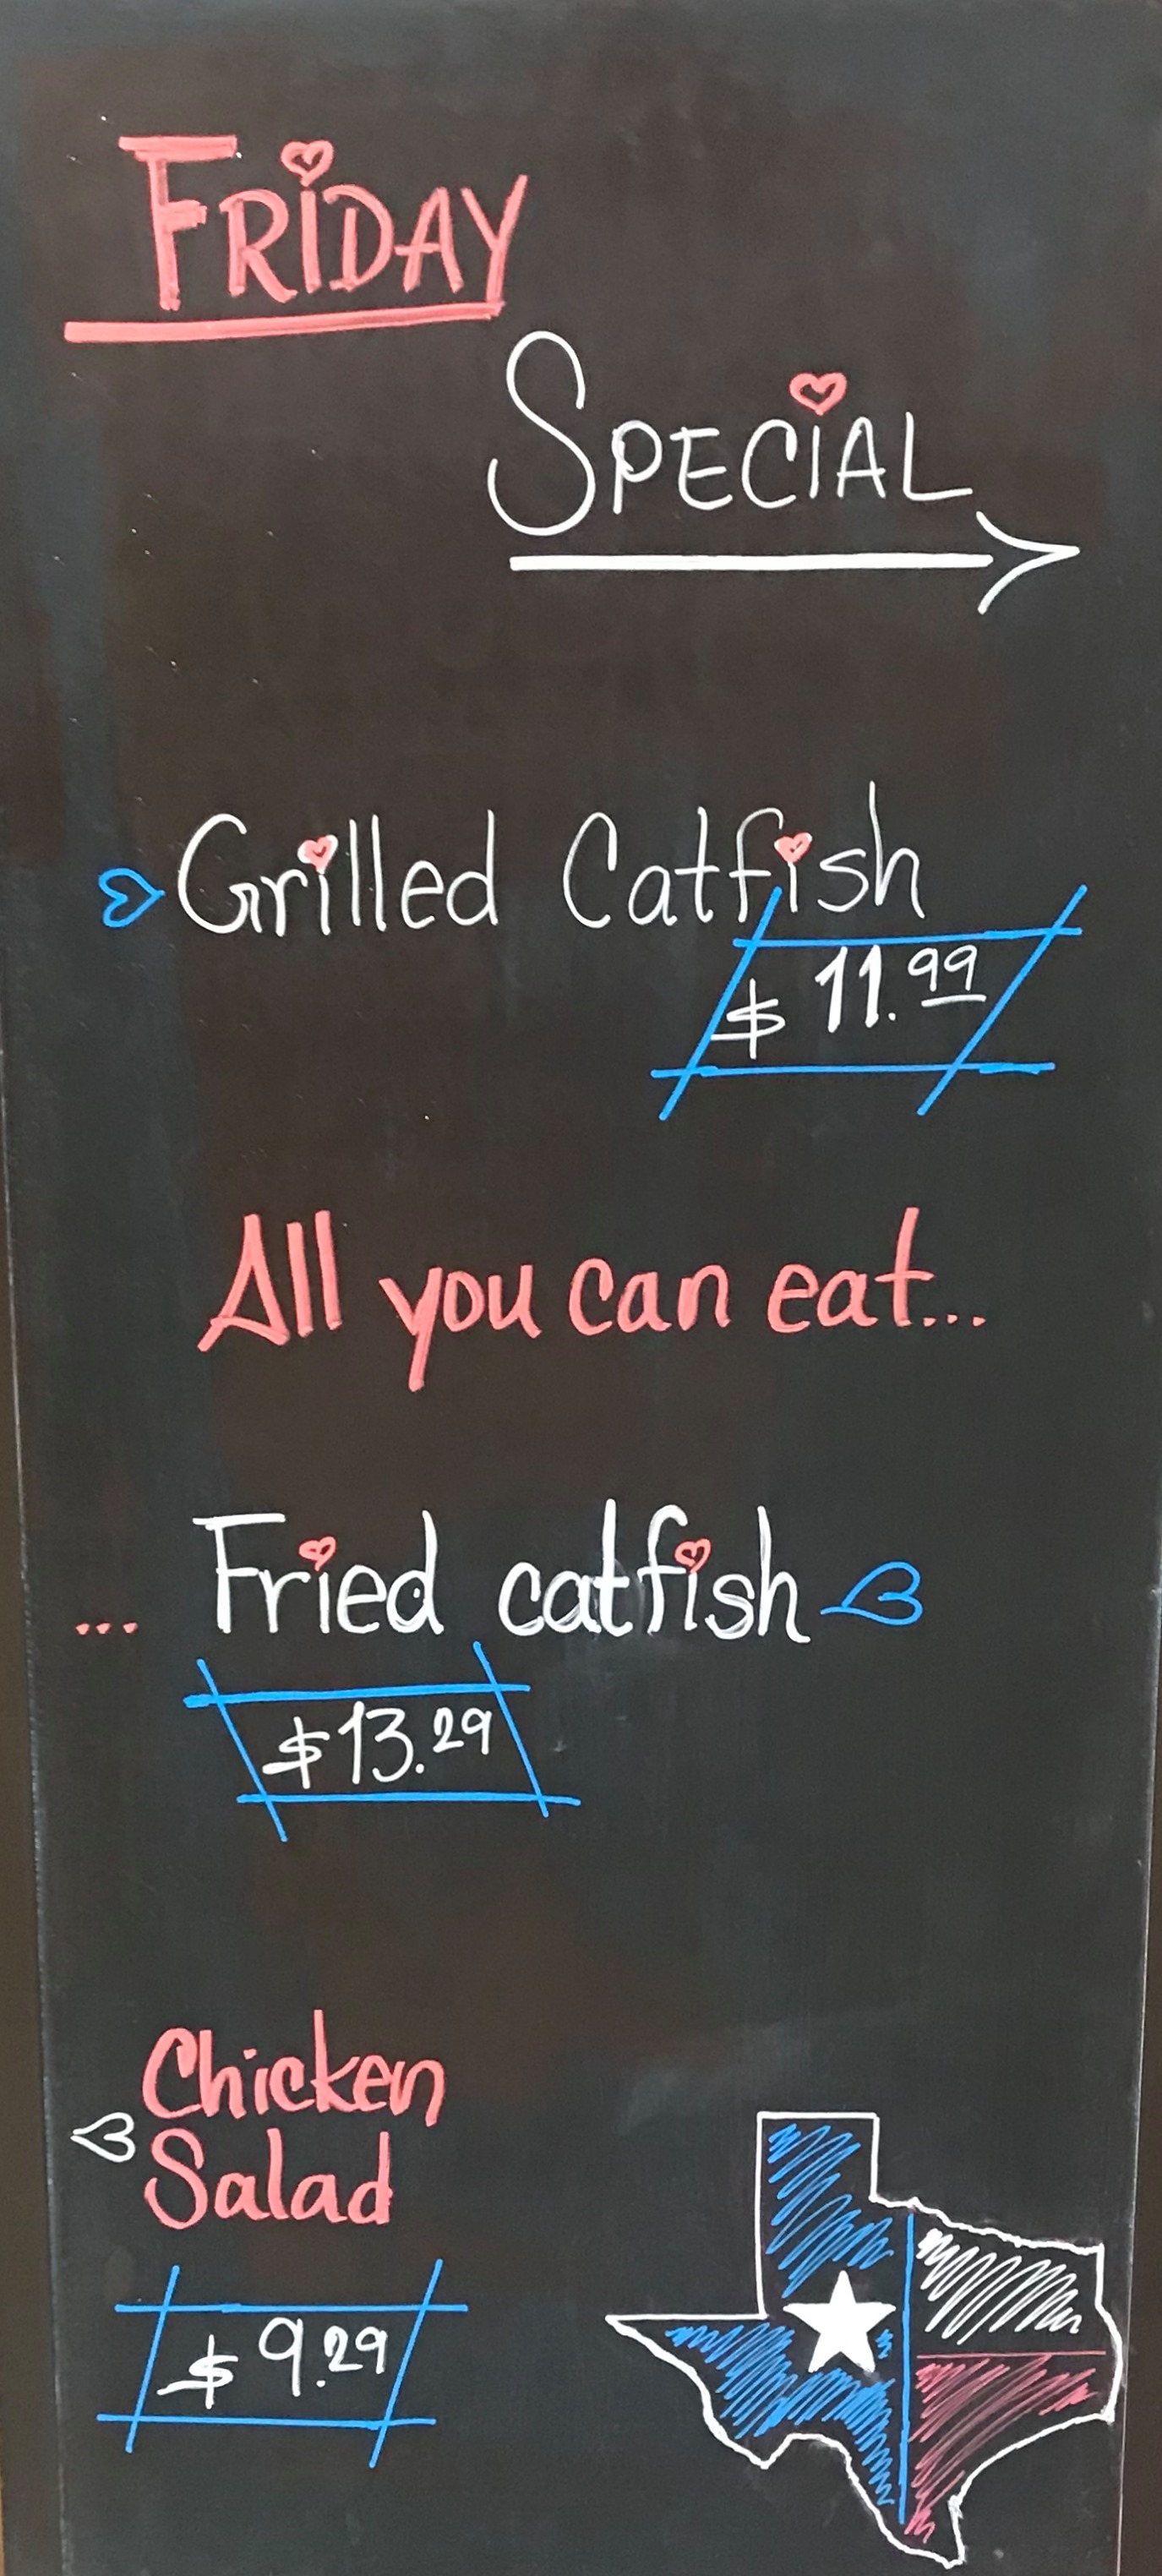 FRiDAY
SPECiAL
Grilled Catfish
$ 11.99
All you can eat...
... Fried catfish
$13.29
Chicken
Salad
$ 9.29